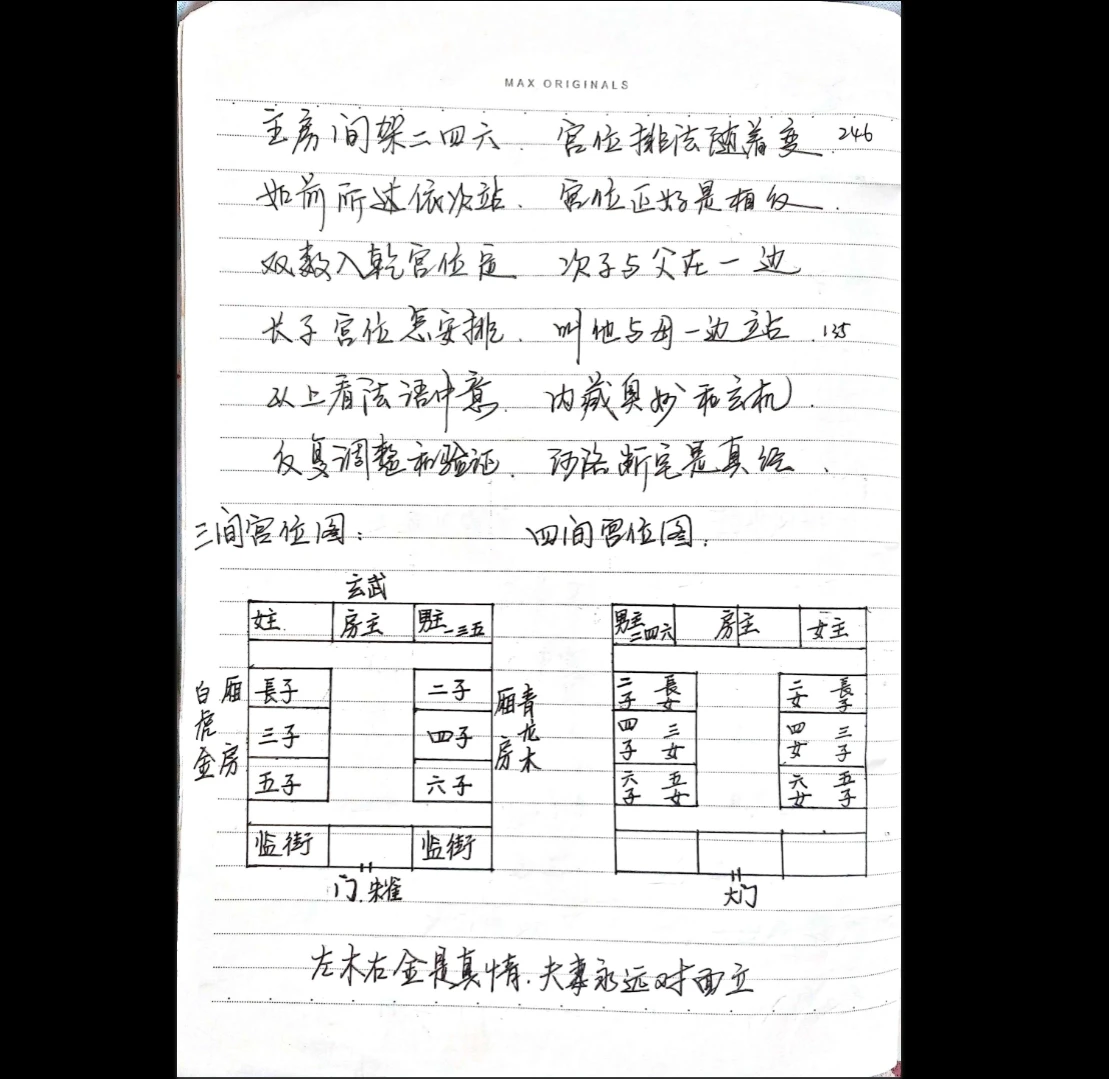 MAX ORIGINALS
主房间架二四六. 宫位排法随着变. 246
如前所述依次站. 宫位正好是相反.
双数入乾宫位定 次子与父在一边
长子宫位怎安排. 叫他与母一边站. 135
以上看法语中意. 内藏奥妙和玄机.
反复调整和验证. 断定是真经.
三间宫位图: 四间宫位图.
玄武
女主 房主 男主一三五
男主二四六 房主 女主
白虎金 厢房
長子 二子
三子 四子
五子 六子
厢房 青龙木
二子 長女 二女 長子
四子 三女 四女 三子
六子 五女 六女 五子
监街 监街
门.朱雀 大门
左木右金是真情.夫妻永远对面立